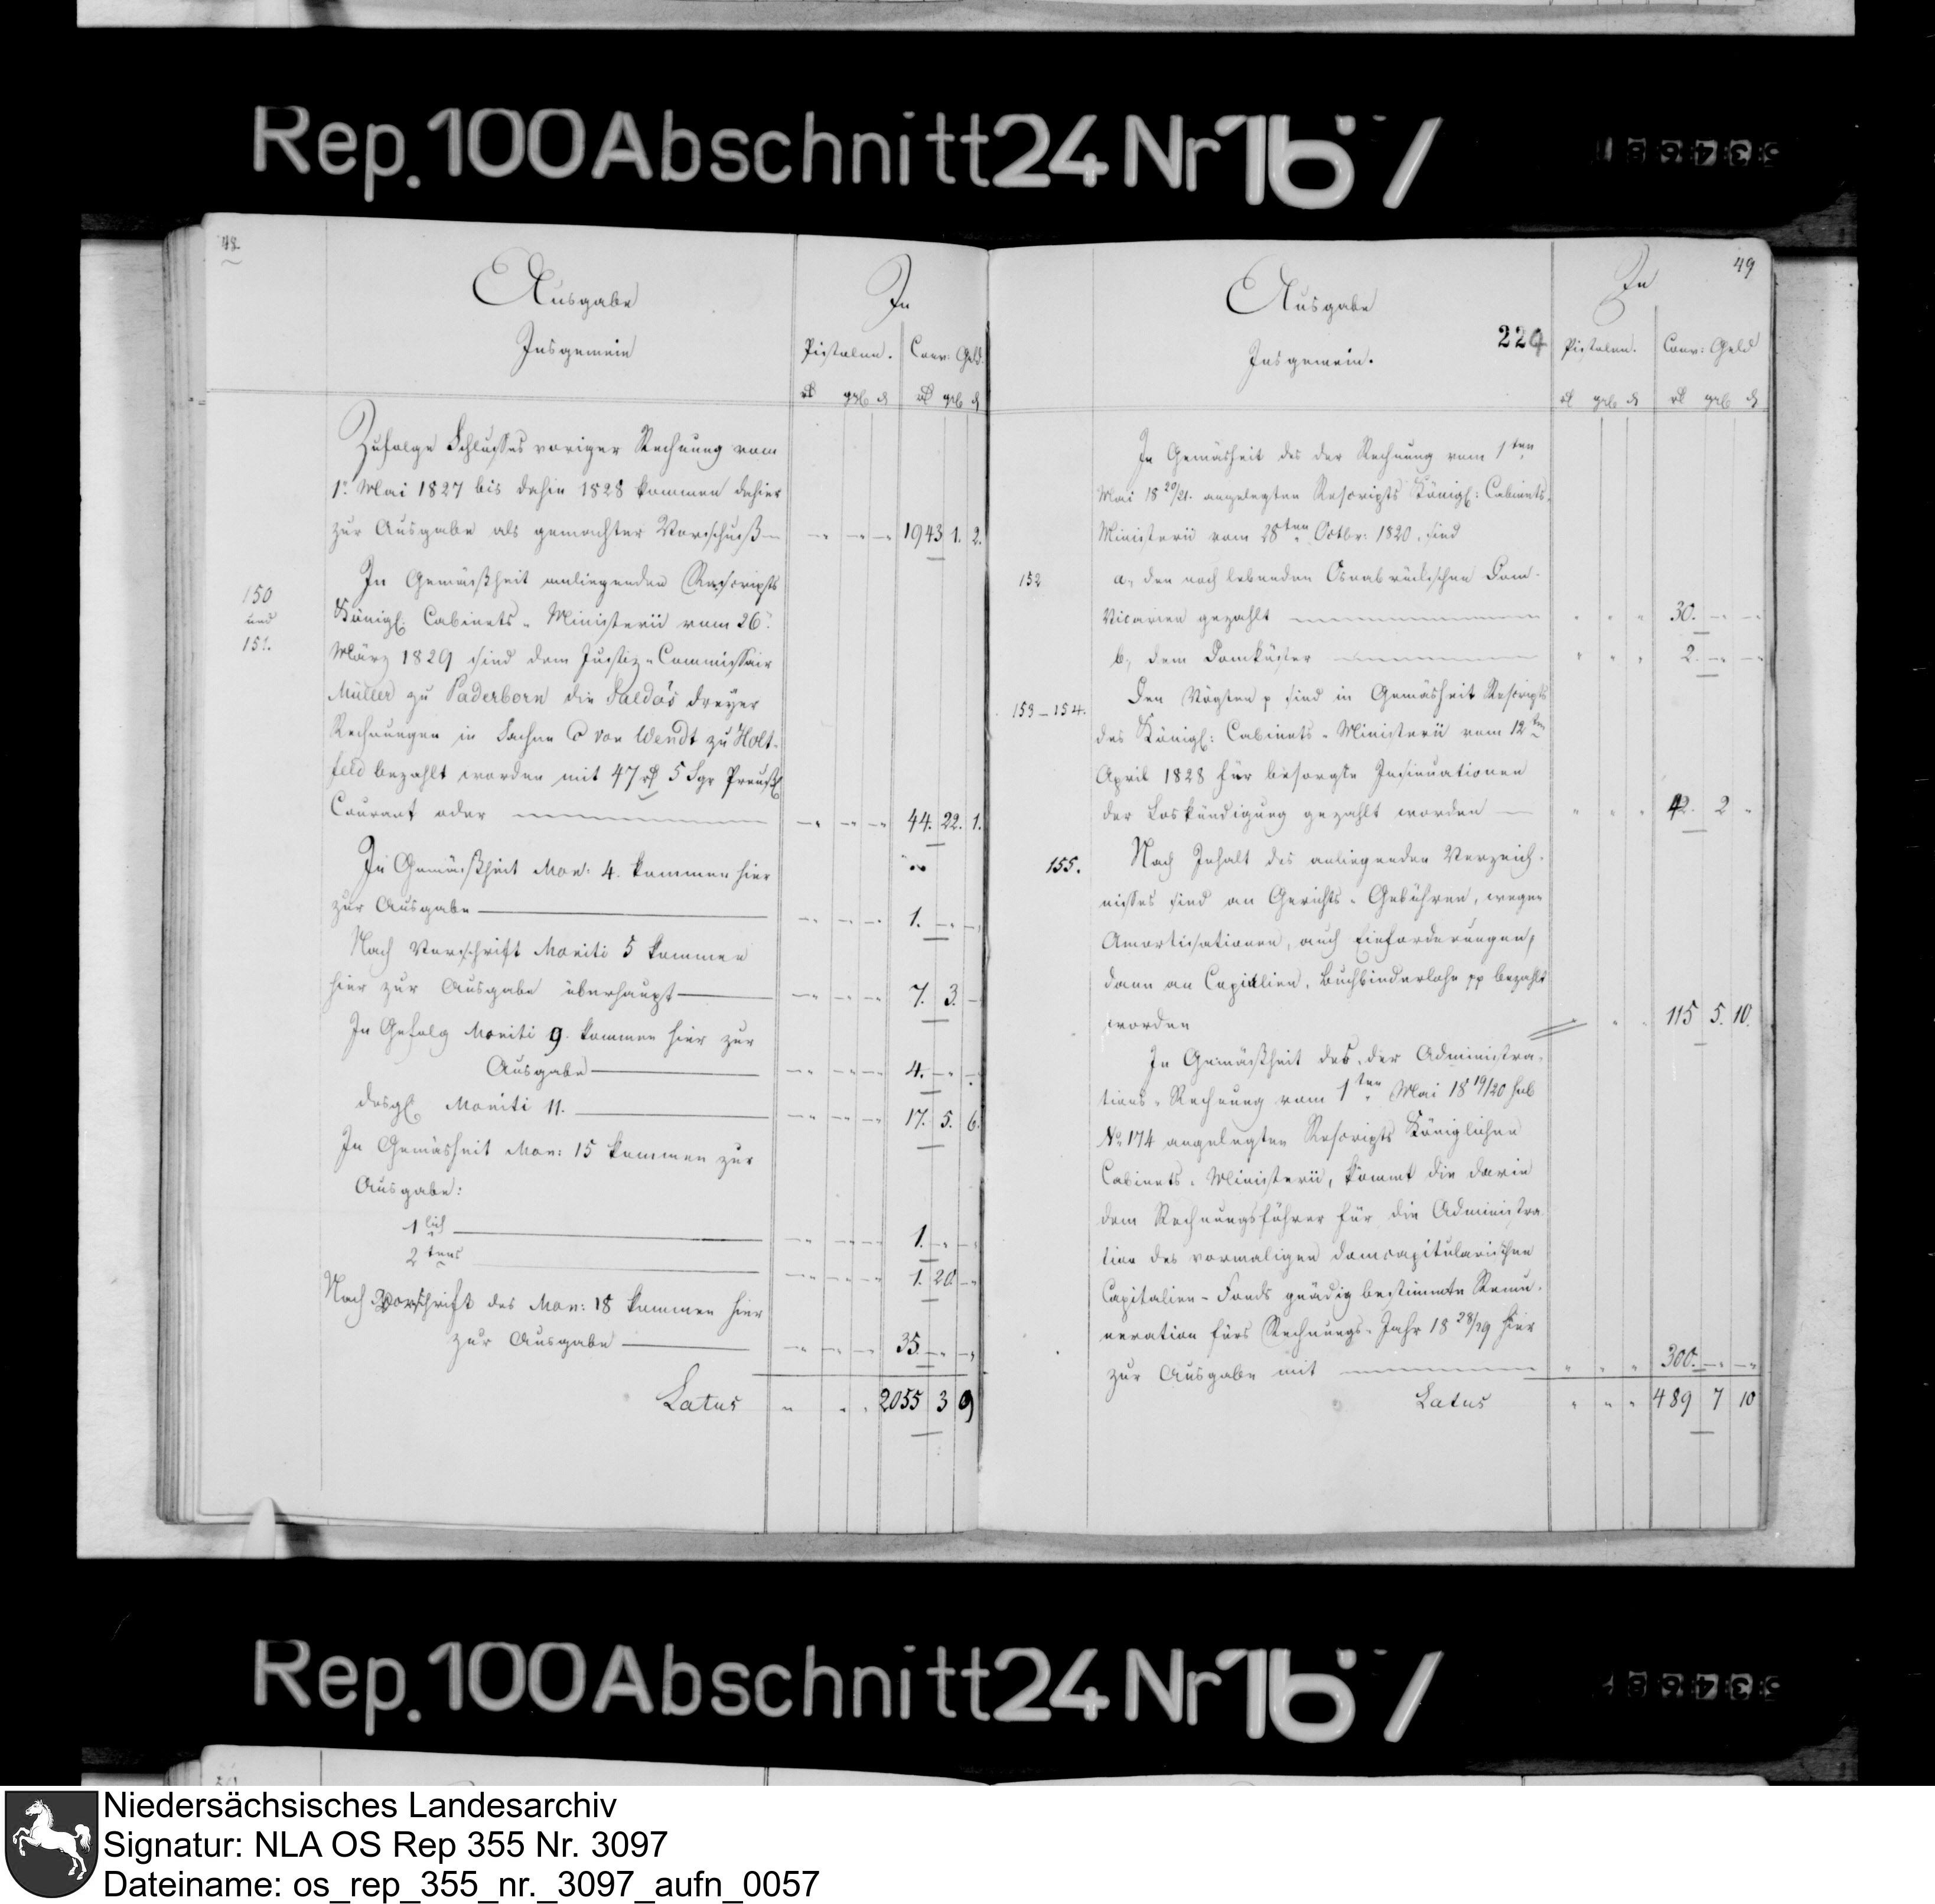 Rep. 100 Abschnitt 24 Nr 167
48
Ausgabe
Insgemein
In
Pistolen. Conv: Geld.
rt ggr d rt ggr d
Zufolge Schlusses voriger Rechnung vom
1t Mai 1827 bis dahin 1828 kommen dahier
zur Ausgabe als gemachter Vorschuß 1943 1. 2.
150
und
151.
In Gemäßheit anliegenden Rescripts
Königl: Cabinets-Ministerii vom 26t
März 1829 sind dem Justiz-Commissair
Müller zu Paderborn die Saldo's dreyer
Rechnungen in Sachen von Wendt zu Holt-
feld bezahlt worden mit 47 rt 5 Sgr Preuß
Courant oder 44. 22. 1.
In Gemäßheit Mon: 4. kommen hier
zur Ausgabe 1. - -
Nach Vorschrift Moniti 5 kommen
hier zur Ausgabe überhaupt 7. 3. -
In Gefolg Moniti 9. kommen hier zur
Ausgabe 4. - -
desgl. Moniti 11. 17. 5. 6.
In Gemäsheit Mon: 15 kommen zur
Ausgabe:
1 lich 1. - -
2 tens 1. 20 -
Nach Vorschrift des Mon: 18 kommen hier
zur Ausgabe 35. - -
Latus 2055 3 9
49
Ausgabe
Insgemein.
224
In
Pistolen. Conv: Geld
rt ggr d rt ggr d
In Gemäsheit des der Rechnung vom 1ten
Mai 18 20/21. angelegten Rescripts Königl: Cabinets-
Ministerii vom 28ten Octbr: 1820, sind
152
a, den noch lebenden Osnabrückischen Dom-
Vicarien gezahlt 30. - -
b, dem Domküster 2. - -
153-154.
Den Vögten p sind in Gemäsheit Rescripts
des Königl: Cabinets-Ministerii vom 12ten
April 1828 für besorgte Insinuationen
der Loskündigung gezahlt worden 42. 2 -
155.
Nach Inhalt des anliegenden Verzeich-
nisses sind an Gerichts-Gebühren, wegen
Amortisationen, auch Einforderungen,
dann an Copialien, Buchbinderlohn pp bezahlt
worden 115 5. 10.
In Gemäßheit des, der Administra-
tions-Rechnung vom 1ten Mai 18 19/20 sub
No 174 angelegten Rescripts Königlichen
Cabinets-Ministerii, kömmt die darin
dem Rechnungsführer für die Administra-
tion des vormaligen domcapitularischen
Capitalien-Fonds gnädig bestimmte Remu-
neration fürs Rechnungs-Jahr 18 28/29 hier
zur Ausgabe mit 300. - -
Latus 489 7 10
Rep. 100 Abschnitt 24 Nr 167
Niedersächsisches Landesarchiv
Signatur: NLA OS Rep 355 Nr. 3097
Dateiname: os_rep_355_nr._3097_aufn_0057